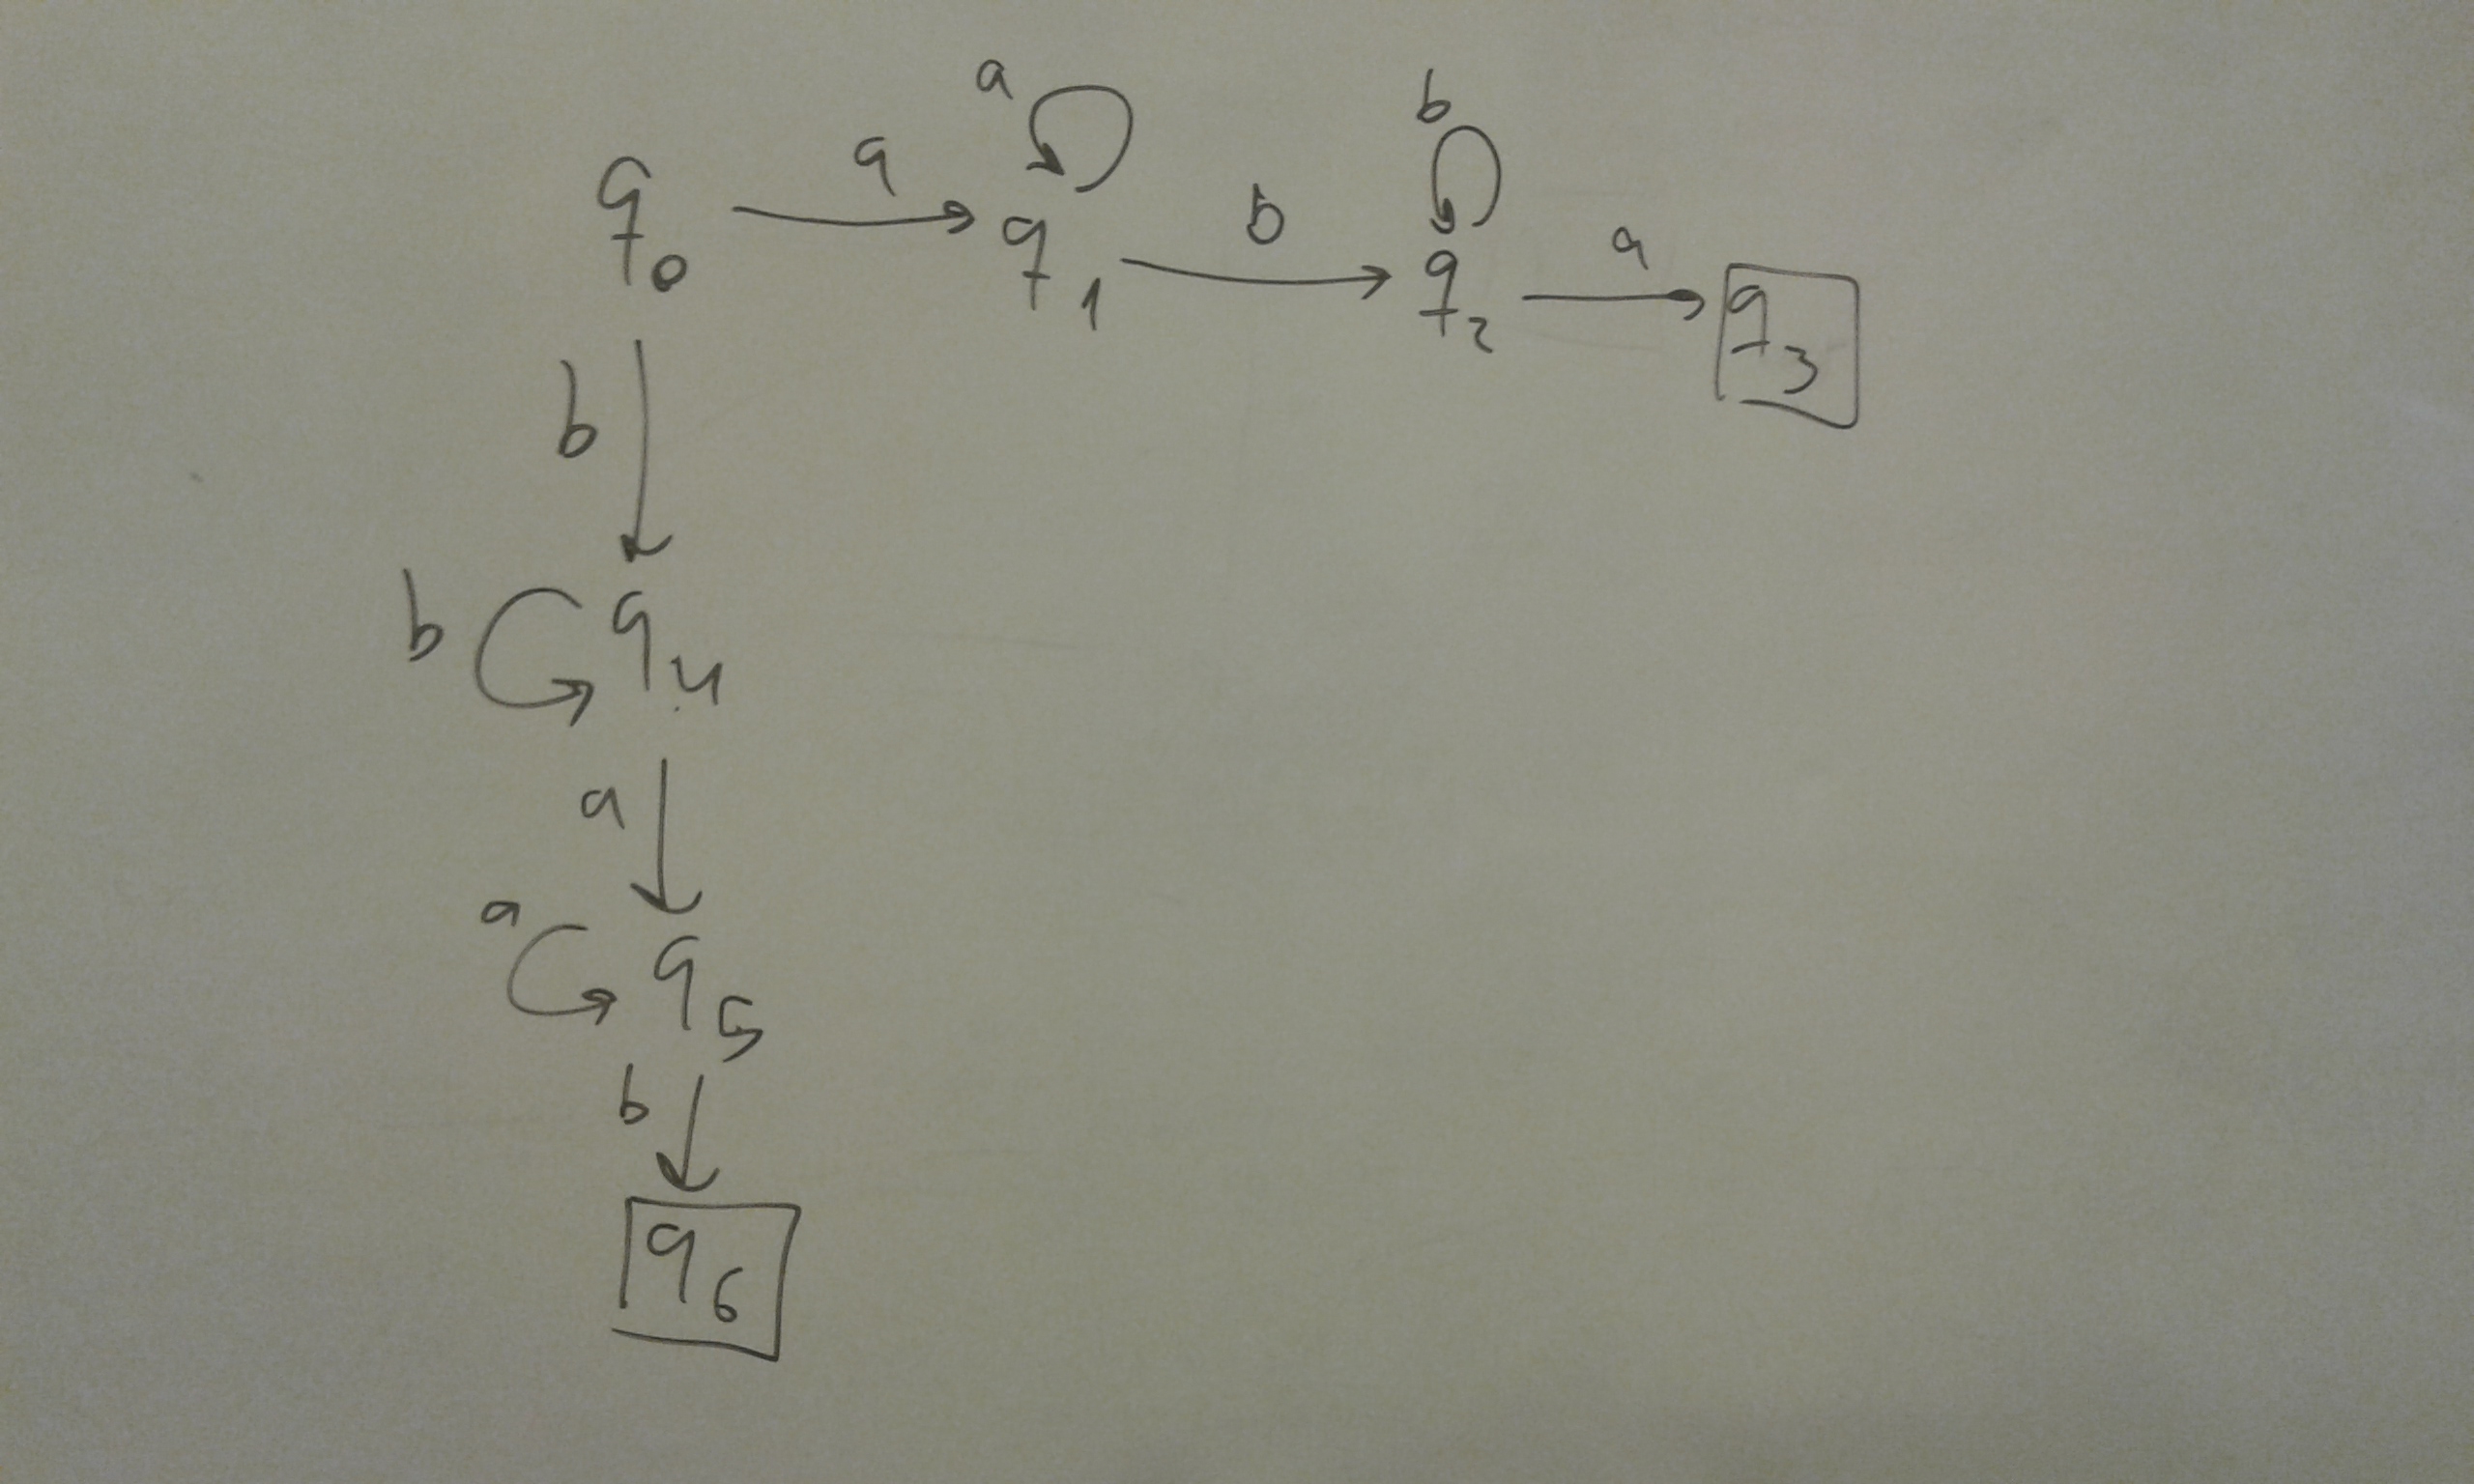 a b
q0 a q1 b q2 a q3
b
b q4
a
a q5
b
q6